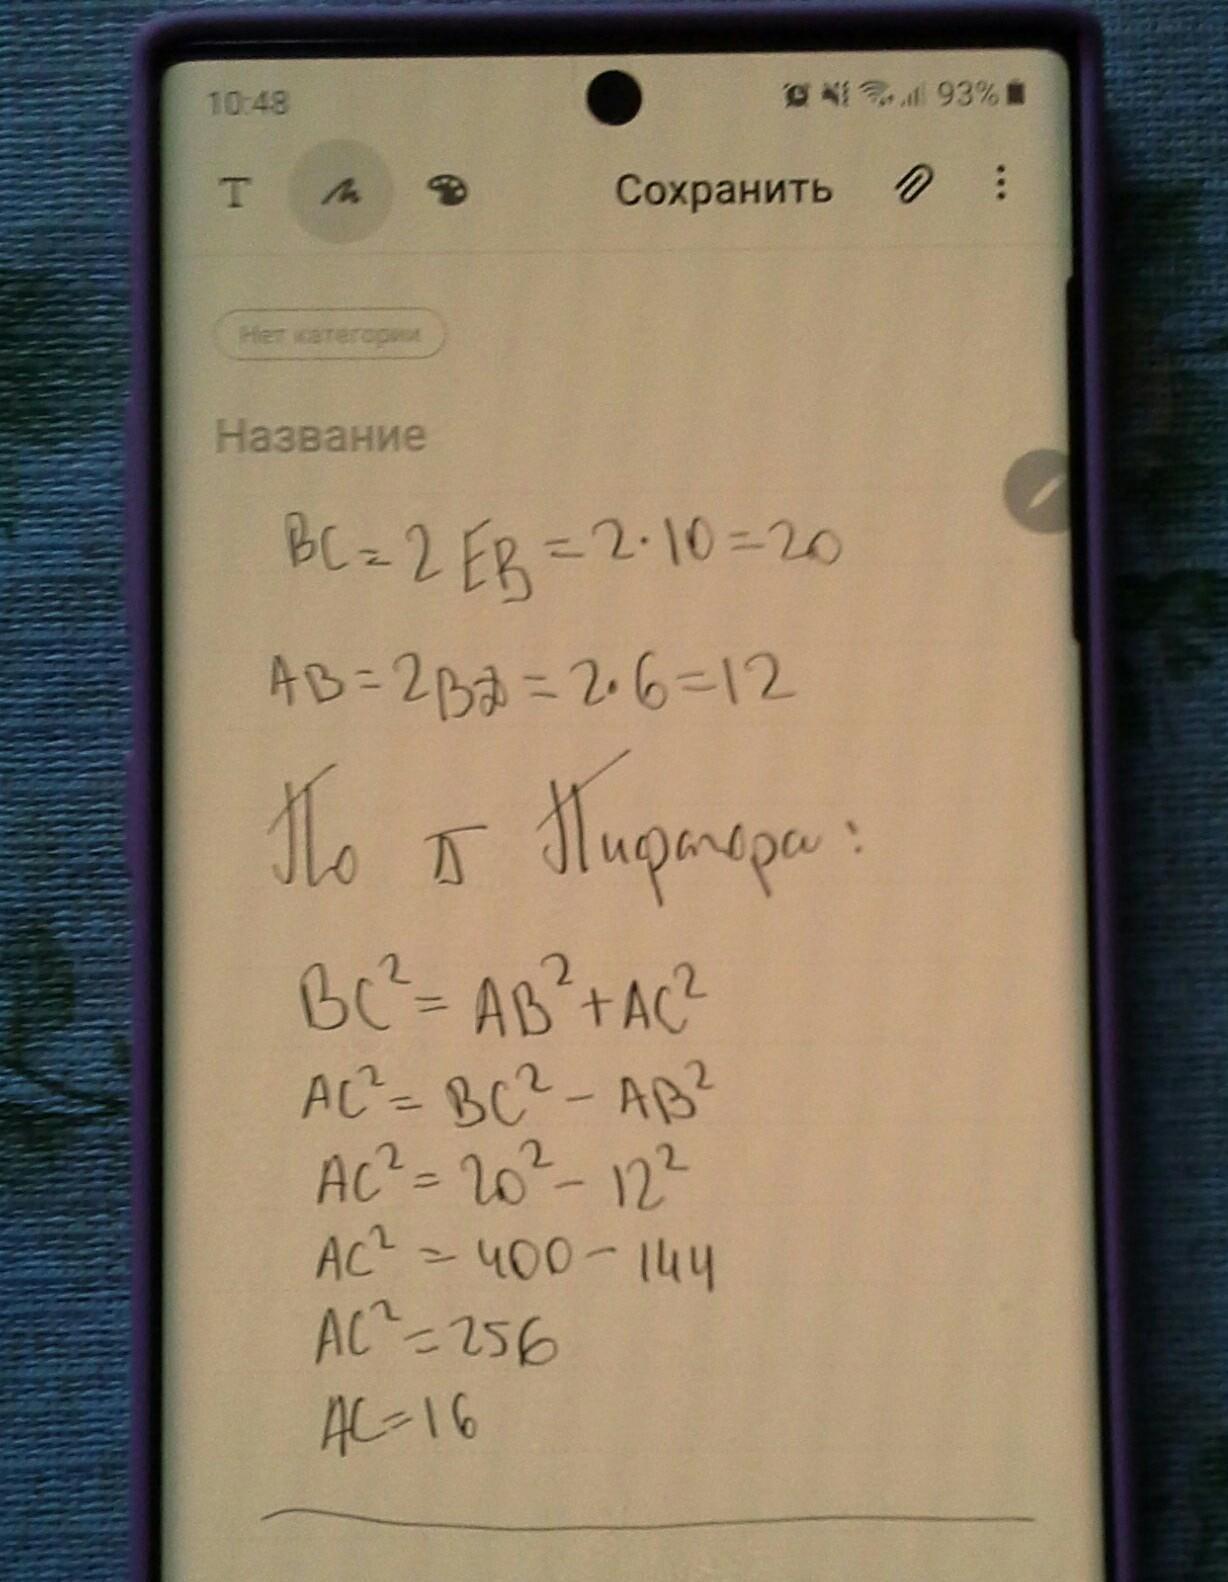 10:48 93%
T Сохранить
Нет категории
Название
BC = 2 EB = 2·10 = 20
AB = 2BD = 2·6 = 12
По П Пифагора:
BC² = AB² + AC²
AC² = BC² - AB²
AC² = 20² - 12²
AC² = 400 - 144
AC² = 256
AC = 16